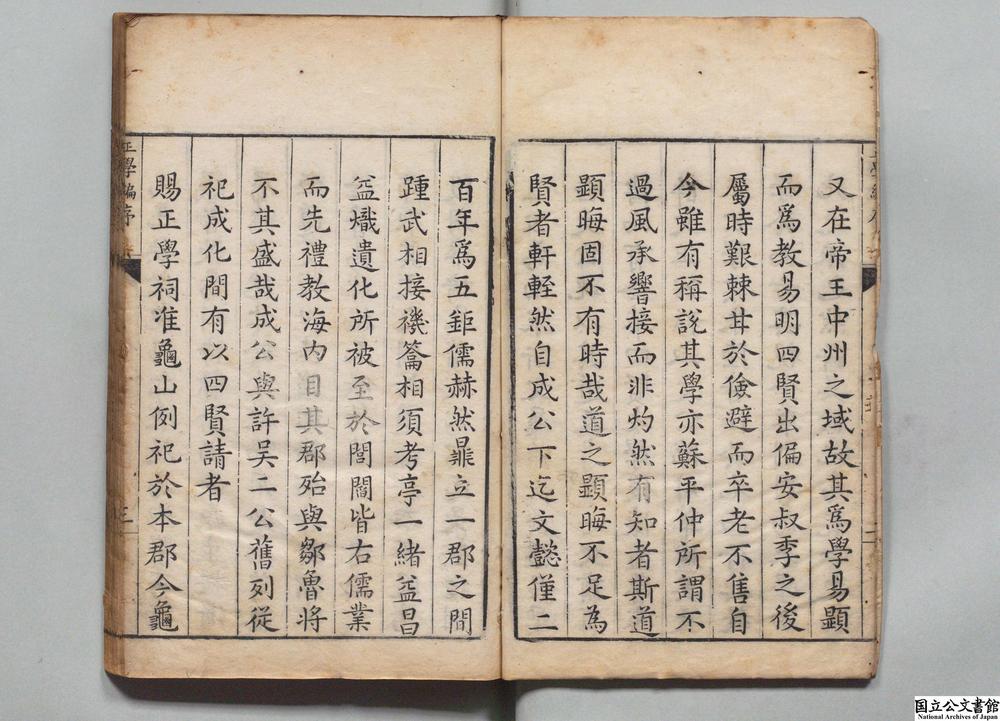 又在帝王中州之域故其爲學易顯
而爲教易明四賢出偏安叔季之後
屬時艱棘甘於儉避而卒老不售自
今雖有稱說其學亦蘇平仲所謂不
過風承響接而非灼然有知者斯道
顯晦固不有時哉道之顯晦不足為
賢者軒輊然自成公下迄文懿僅二
百年爲五鉅儒赫然暴立一郡之間
踵武相接磯籥相須考亭一緒益昌
益熾遺化所被至於閭閻皆右儒業
而先禮教海内目其郡殆與鄒魯將
不其盛哉成公與許吳二公舊列從
祀成化間有以四賢請者
賜正學祠准龜山例祀於本郡今龜
正學編序
三
国立公文書館
National Archives of Japan